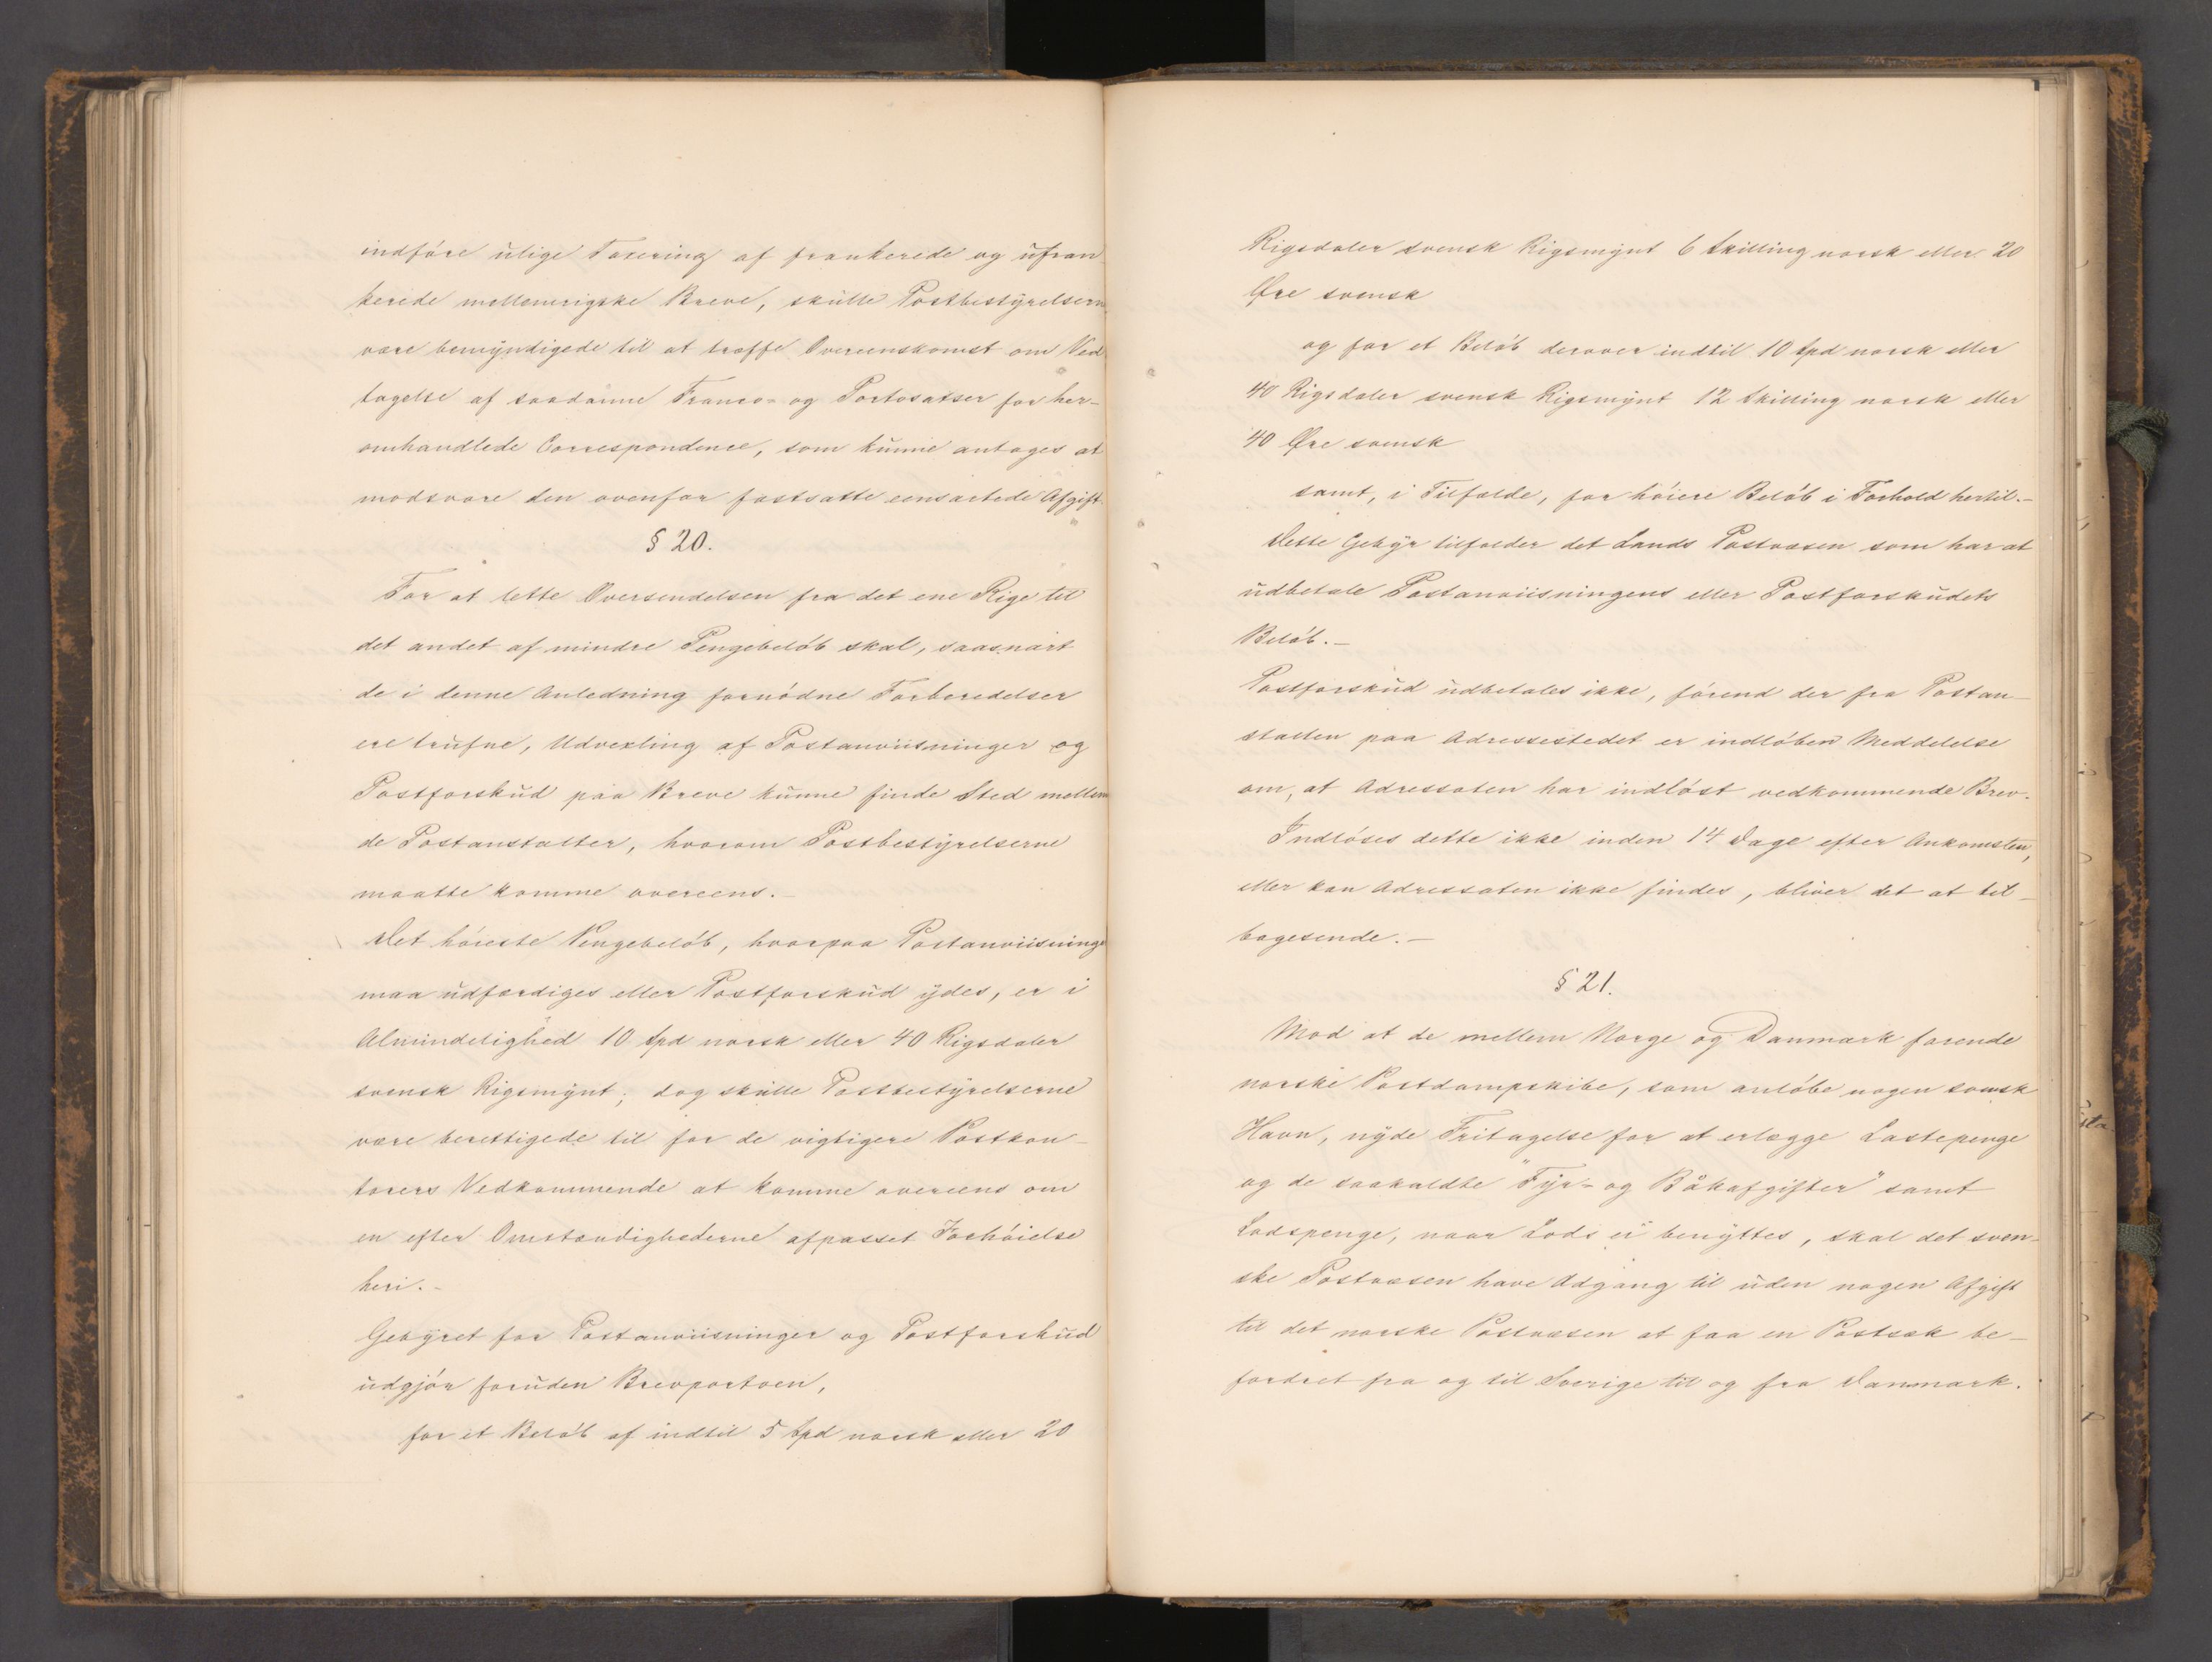 indføre ulige Taxering af frankerede og ufran
kerede mellemrigske Breve, skulle Postbestyrelsern
være bemyndigede til at træffe Overeenskomst om Ved
tagelse af saadanne Franco- og Portosatser for her-
omhandlede Correspondence, som kunne antages at
modsvare den ovenfor fastsatte eensartede Afgift.
§ 20.
For at lette Oversendelsen fra det ene Rige til
det andet af mindre Pengebeløb skal, saasnart
de i denne Anledning fornødne Forberedelser
ere trufne, Udvexling af Postanviisninger og
Postforskud paa Breve kunne finde Sted mellem
de Postanstalter, hvorom Postbestyrelserne
maatte komme overeens.-
Det høieste Pengebeløb, hvorpaa Postanviisninge
maa udfærdiges eller Postforskud ydes, er i
Almindelighed 10 Spd norsk eller 40 Rigsdaler
svensk Rigsmynt; dog skulle Postbestyrelserne
være berettigede til for de vigtigere Postkon-
torers Vedkommende at komme overeens om
en efter Omstændighederne afpasset Forhøielse
heri.-
Gebyret for Postanviisninger og Postforskud
udgjør foruden Brevportoen,
for et Beløb af indtil 5 Spd norsk eller 20
Rigsdaler svensk Rigsmynt 6 Skilling norsk eller 20
Øre svensk
og for et Beløb derover indtil 10 Spd norsk eller
40 Rigsdaler svensk Rigsmynt 12 Skilling norsk eller
40 Øre svensk
samt, i Tilfælde, for høiere Beløb i Forhold hertil.-
Dette Gebyr tilfalder det Lands Postvæsen som har at
udbetale Postanviisningens eller Postforskudets
Beløb.-
Postforskud udbetales ikke, førend der fra Postan-
stalten paa Adressestedet er indløben Meddelelse
om, at Adressaten har indløst vedkommende Brev.
Indløses dette ikke inden 14 Dage efter Ankomsten,
eller kan Adressaten ikke findes, bliver det at til-
bagesende.-
§ 21.
Mod at de mellem Norge og Danmark farende
norske Postdampskibe, som anløbe nogen svensk
Havn, nyde Fritagelse for at erlægge Lastepenge
og de saakaldte "Fyr- og Båkafgifter" samt
Lodspenge, naar Lods ei benyttes, skal det sven-
ske Postvæsen have Adgang til uden nogen Afgift
til det norske Postvæsen at faa en Postsæk be-
fordret fra og til Sverige til og fra Danmark.